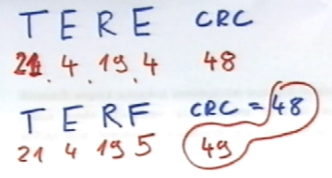 T E R E CRC
21 . 4 . 19 . 4 48
T E R F CRC = 48
21 4 19 5 49